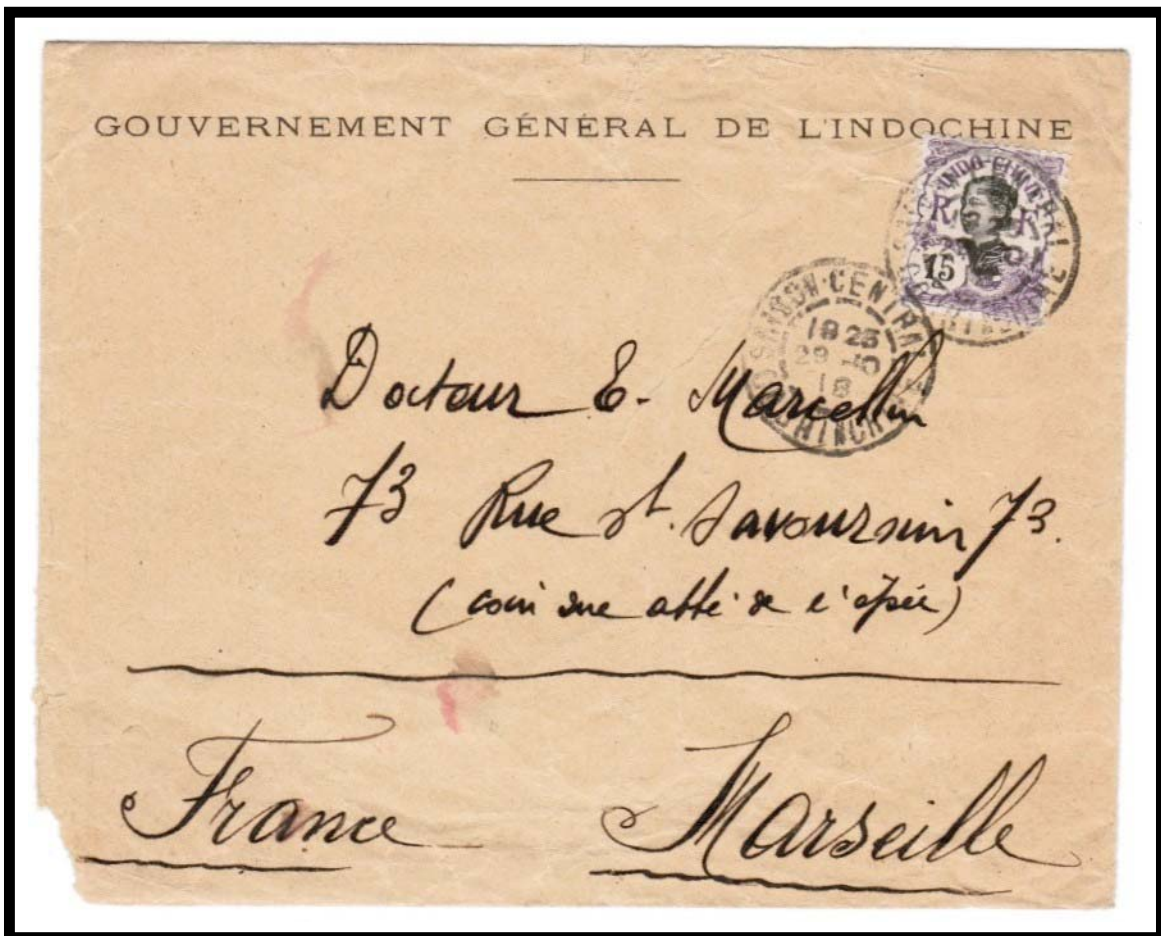 GOUVERNEMENT GÉNÉRAL DE L'INDOCHINE
INDO-CHINE
R F
15
SAIGON-CENTRAL
18 25
29 -10
18
COCHINCHINE
Docteur E. Marcellin
73 Rue St. Savournin 73.
(coin rue abbé de l'épée)
France Marseille